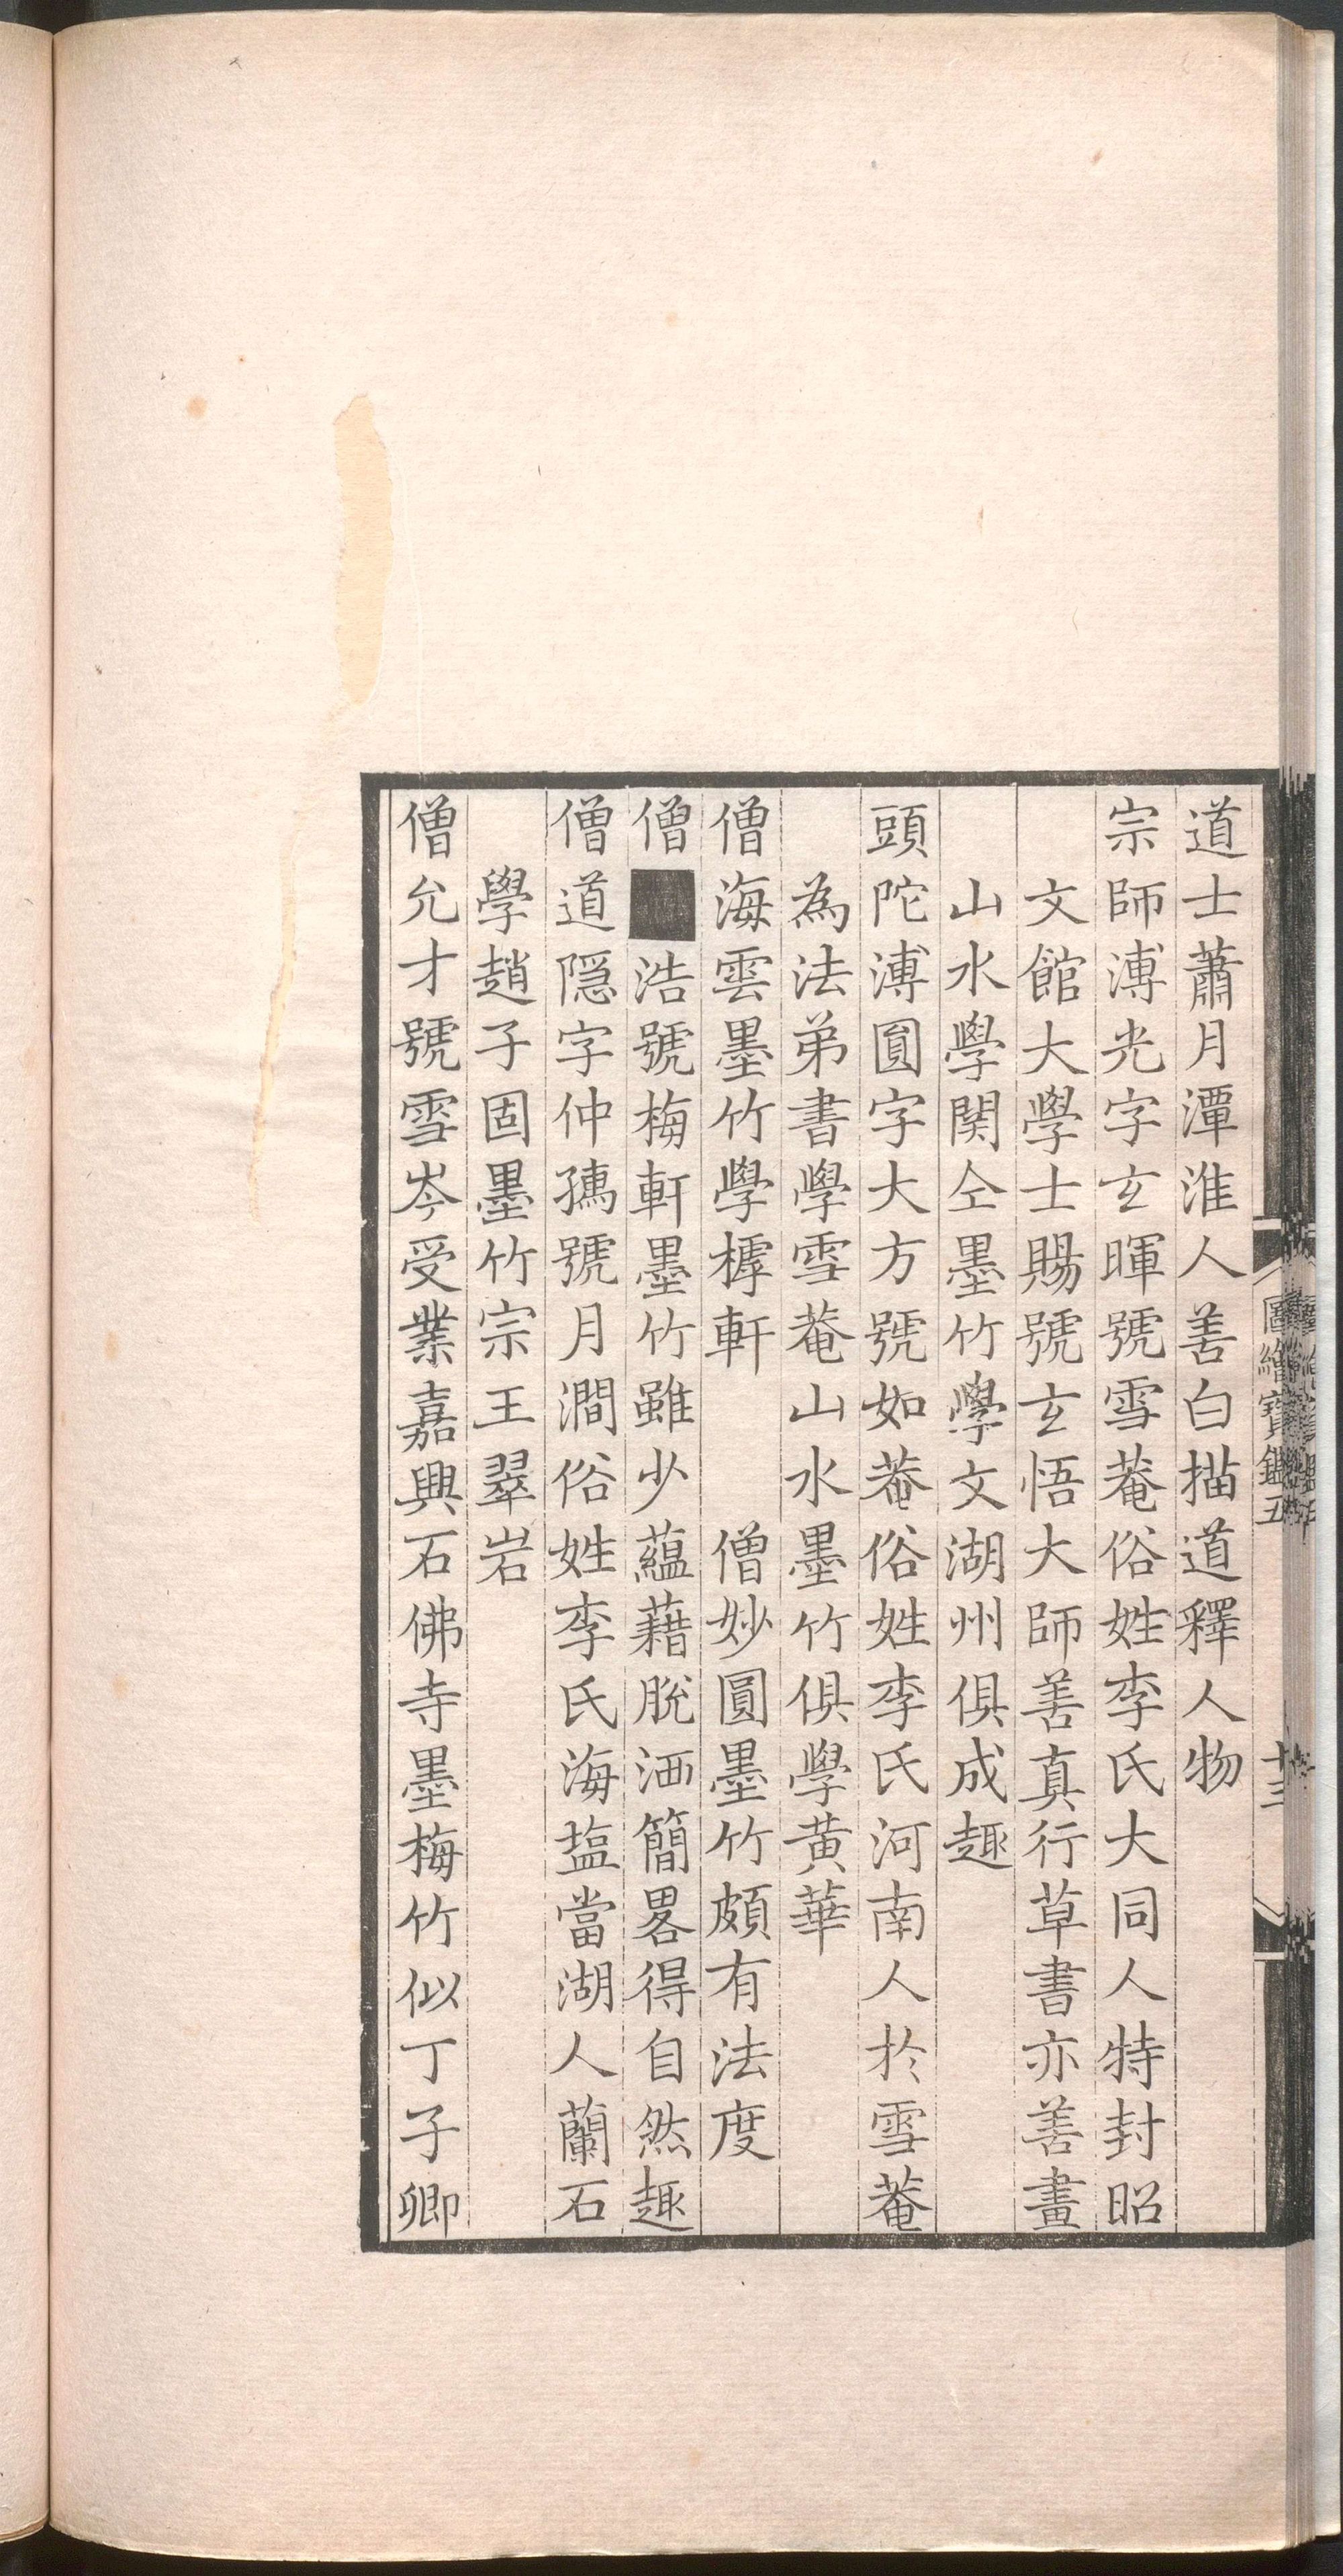 道士蕭月潭淮人善白描道釋人物
宗師溥光字玄暉號雪菴俗姓李氏大同人特封昭
文館大學士賜號玄悟大師善真行草書亦善畫
山水學関仝墨竹學文湖州俱成趣
頭陀溥圓字大方號如菴俗姓李氏河南人於雪菴
為法弟書學雪菴山水墨竹俱學黄華
僧海雲墨竹學樗軒　僧妙圓墨竹頗有法度
僧■浩號梅軒墨竹雖少蘊藉脫洒簡畧得自然趣
僧道隱字仲孺號月澗俗姓李氏海塩當湖人蘭石
學趙子固墨竹宗王翠岩
僧允才號雪岑受業嘉興石佛寺墨梅竹似丁子卿
圖繪寶鑑五
十三